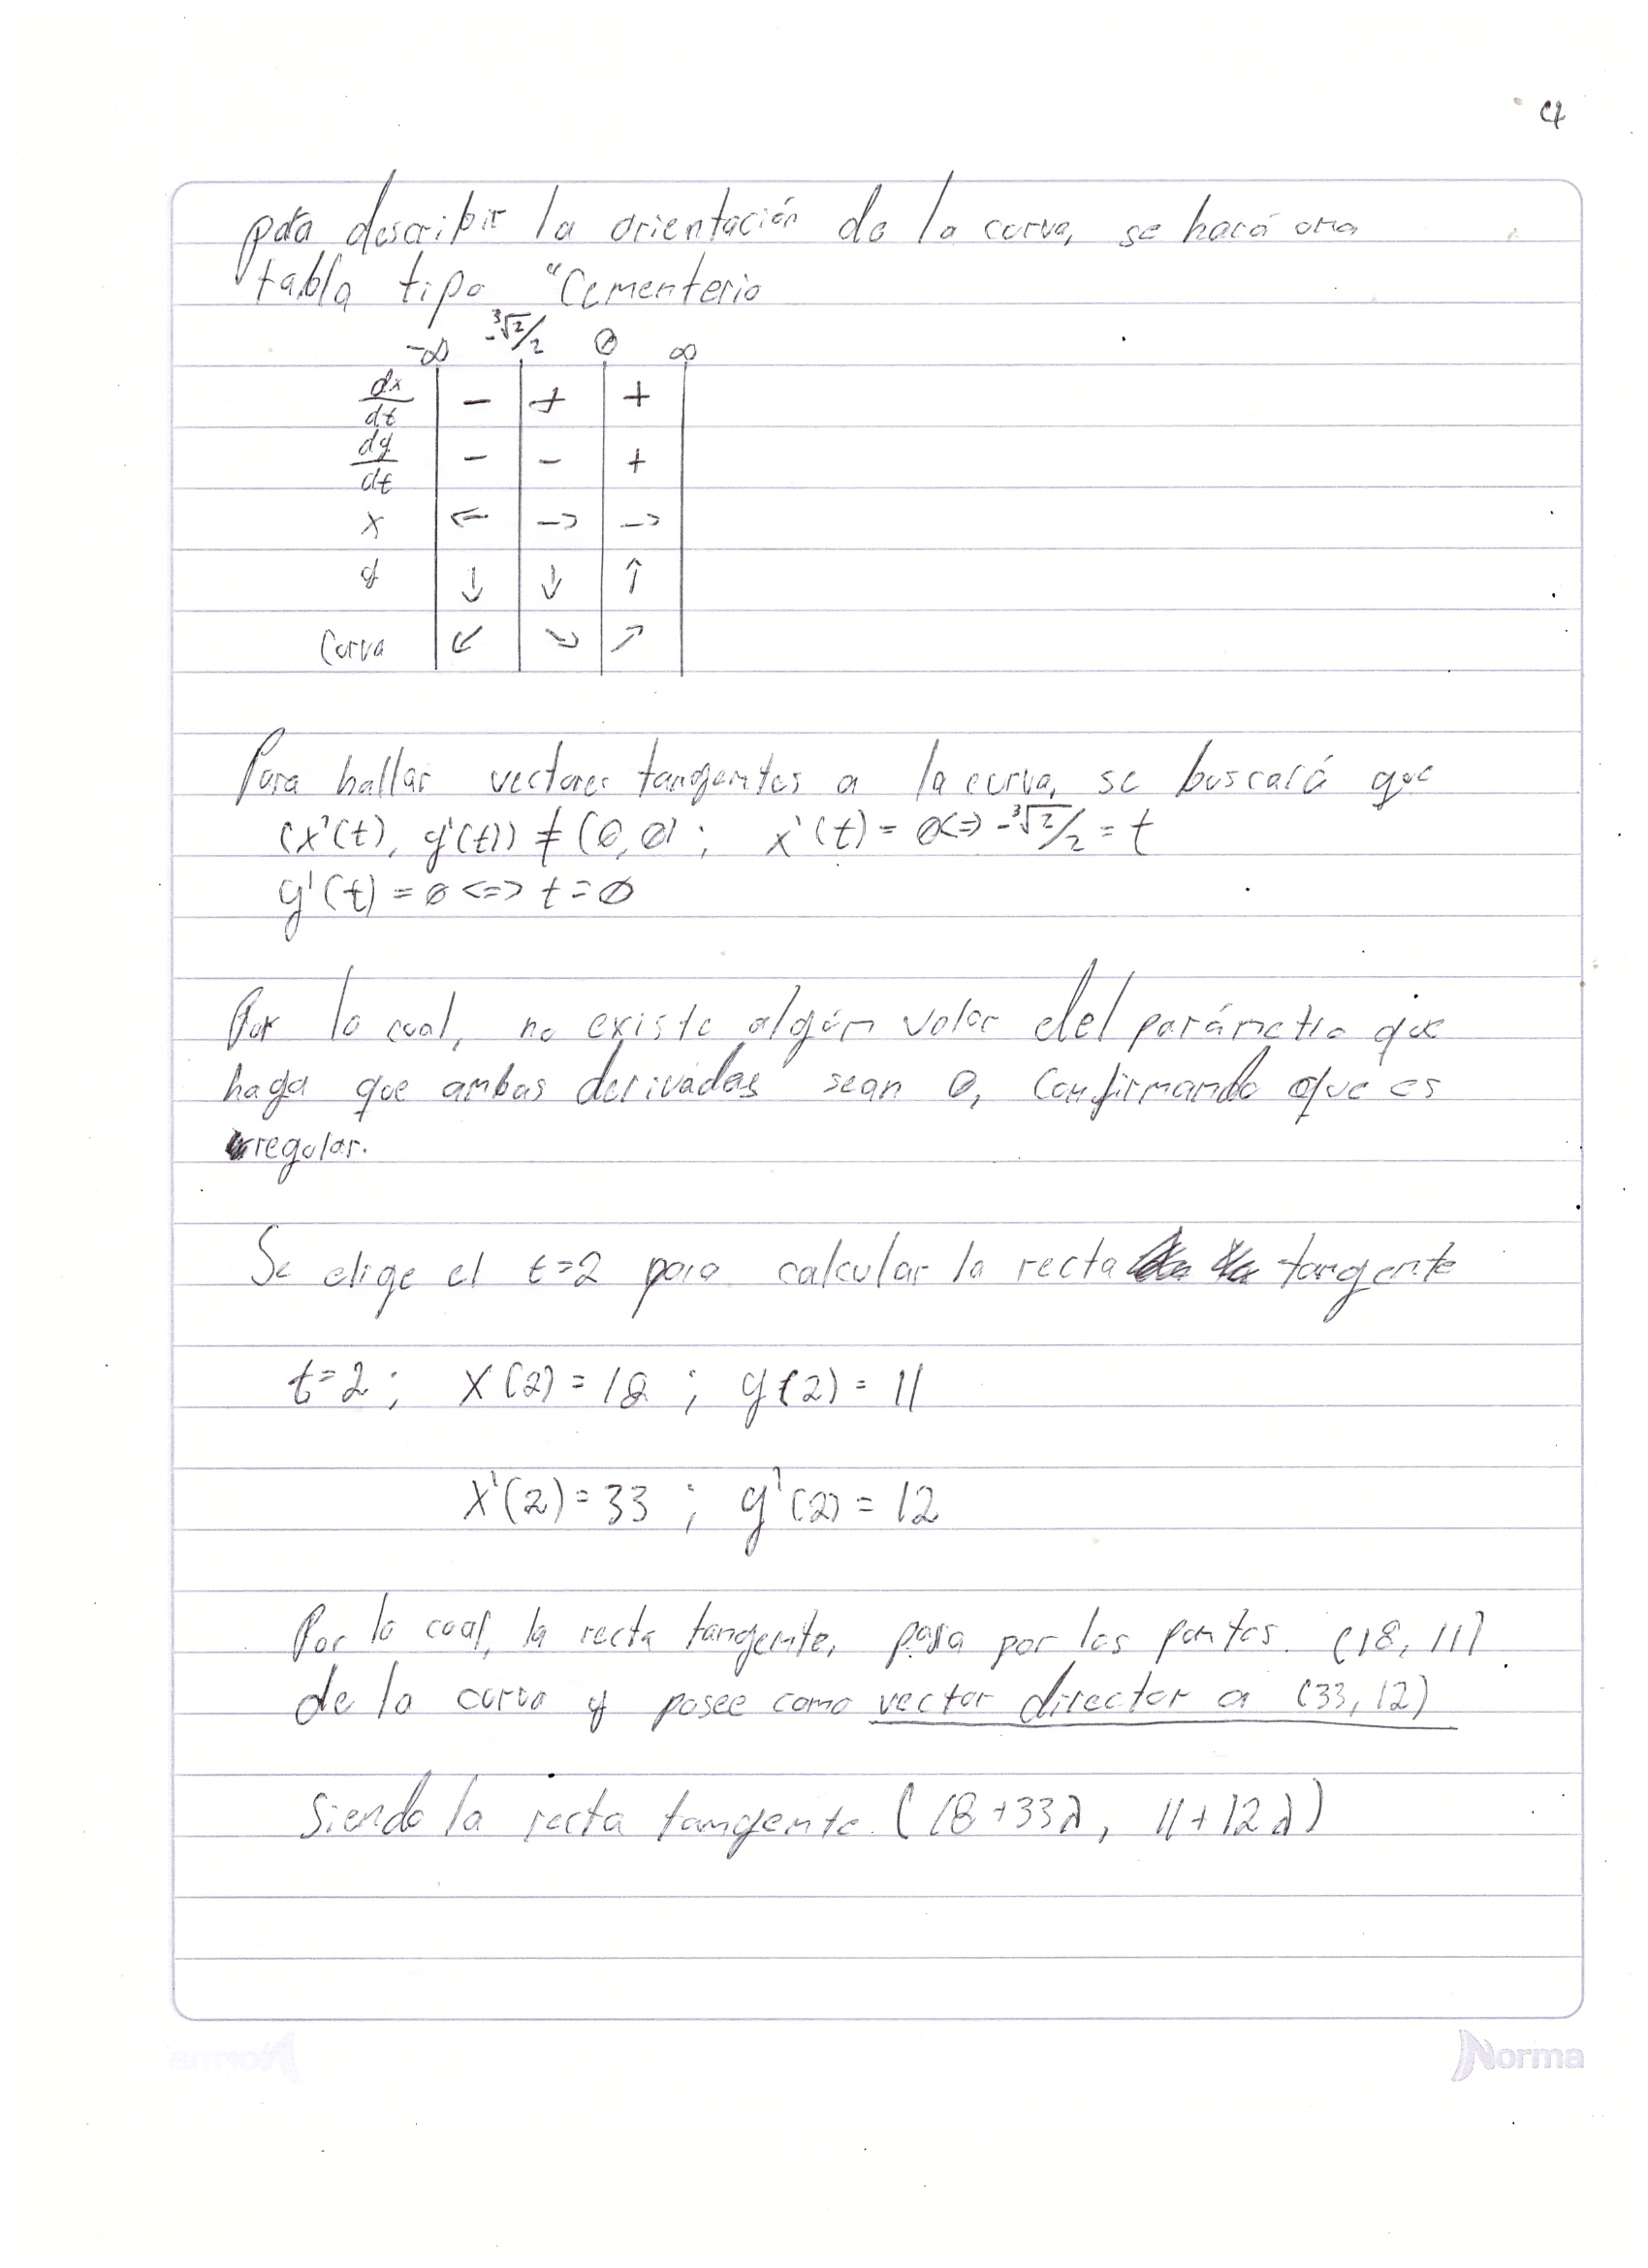 4
para describir la orientación de la curva, se hará una
tabla tipo "Cementerio
-∞ -³√2/2 0 ∞
dx/dt - + +
dy/dt - - +
x ← → →
y ↓ ↓ ↑
Curva ↙ ↘ ↗
Para hallar vectores tangentes a la curva, se buscará que
(x'(t), y'(t)) ≠ (0,0) ; x'(t) = 0 <=> -³√2/2 = t
y'(t) = 0 <=> t = 0
Por lo cual, no existe algún valor del parámetro que
haga que ambas derivadas sean 0, Confirmando que es
regular.
Se elige el t=2 para calcular la recta tangente
t=2 ; x(2) = 18 ; y(2) = 11
x'(2) = 33 ; y'(2) = 12
Por lo cual, la recta tangente, pasa por los puntos. (18, 11)
de la curva y posee como vector director a (33, 12)
Siendo la recta tangente. (18+33λ, 11+12λ)
Norma